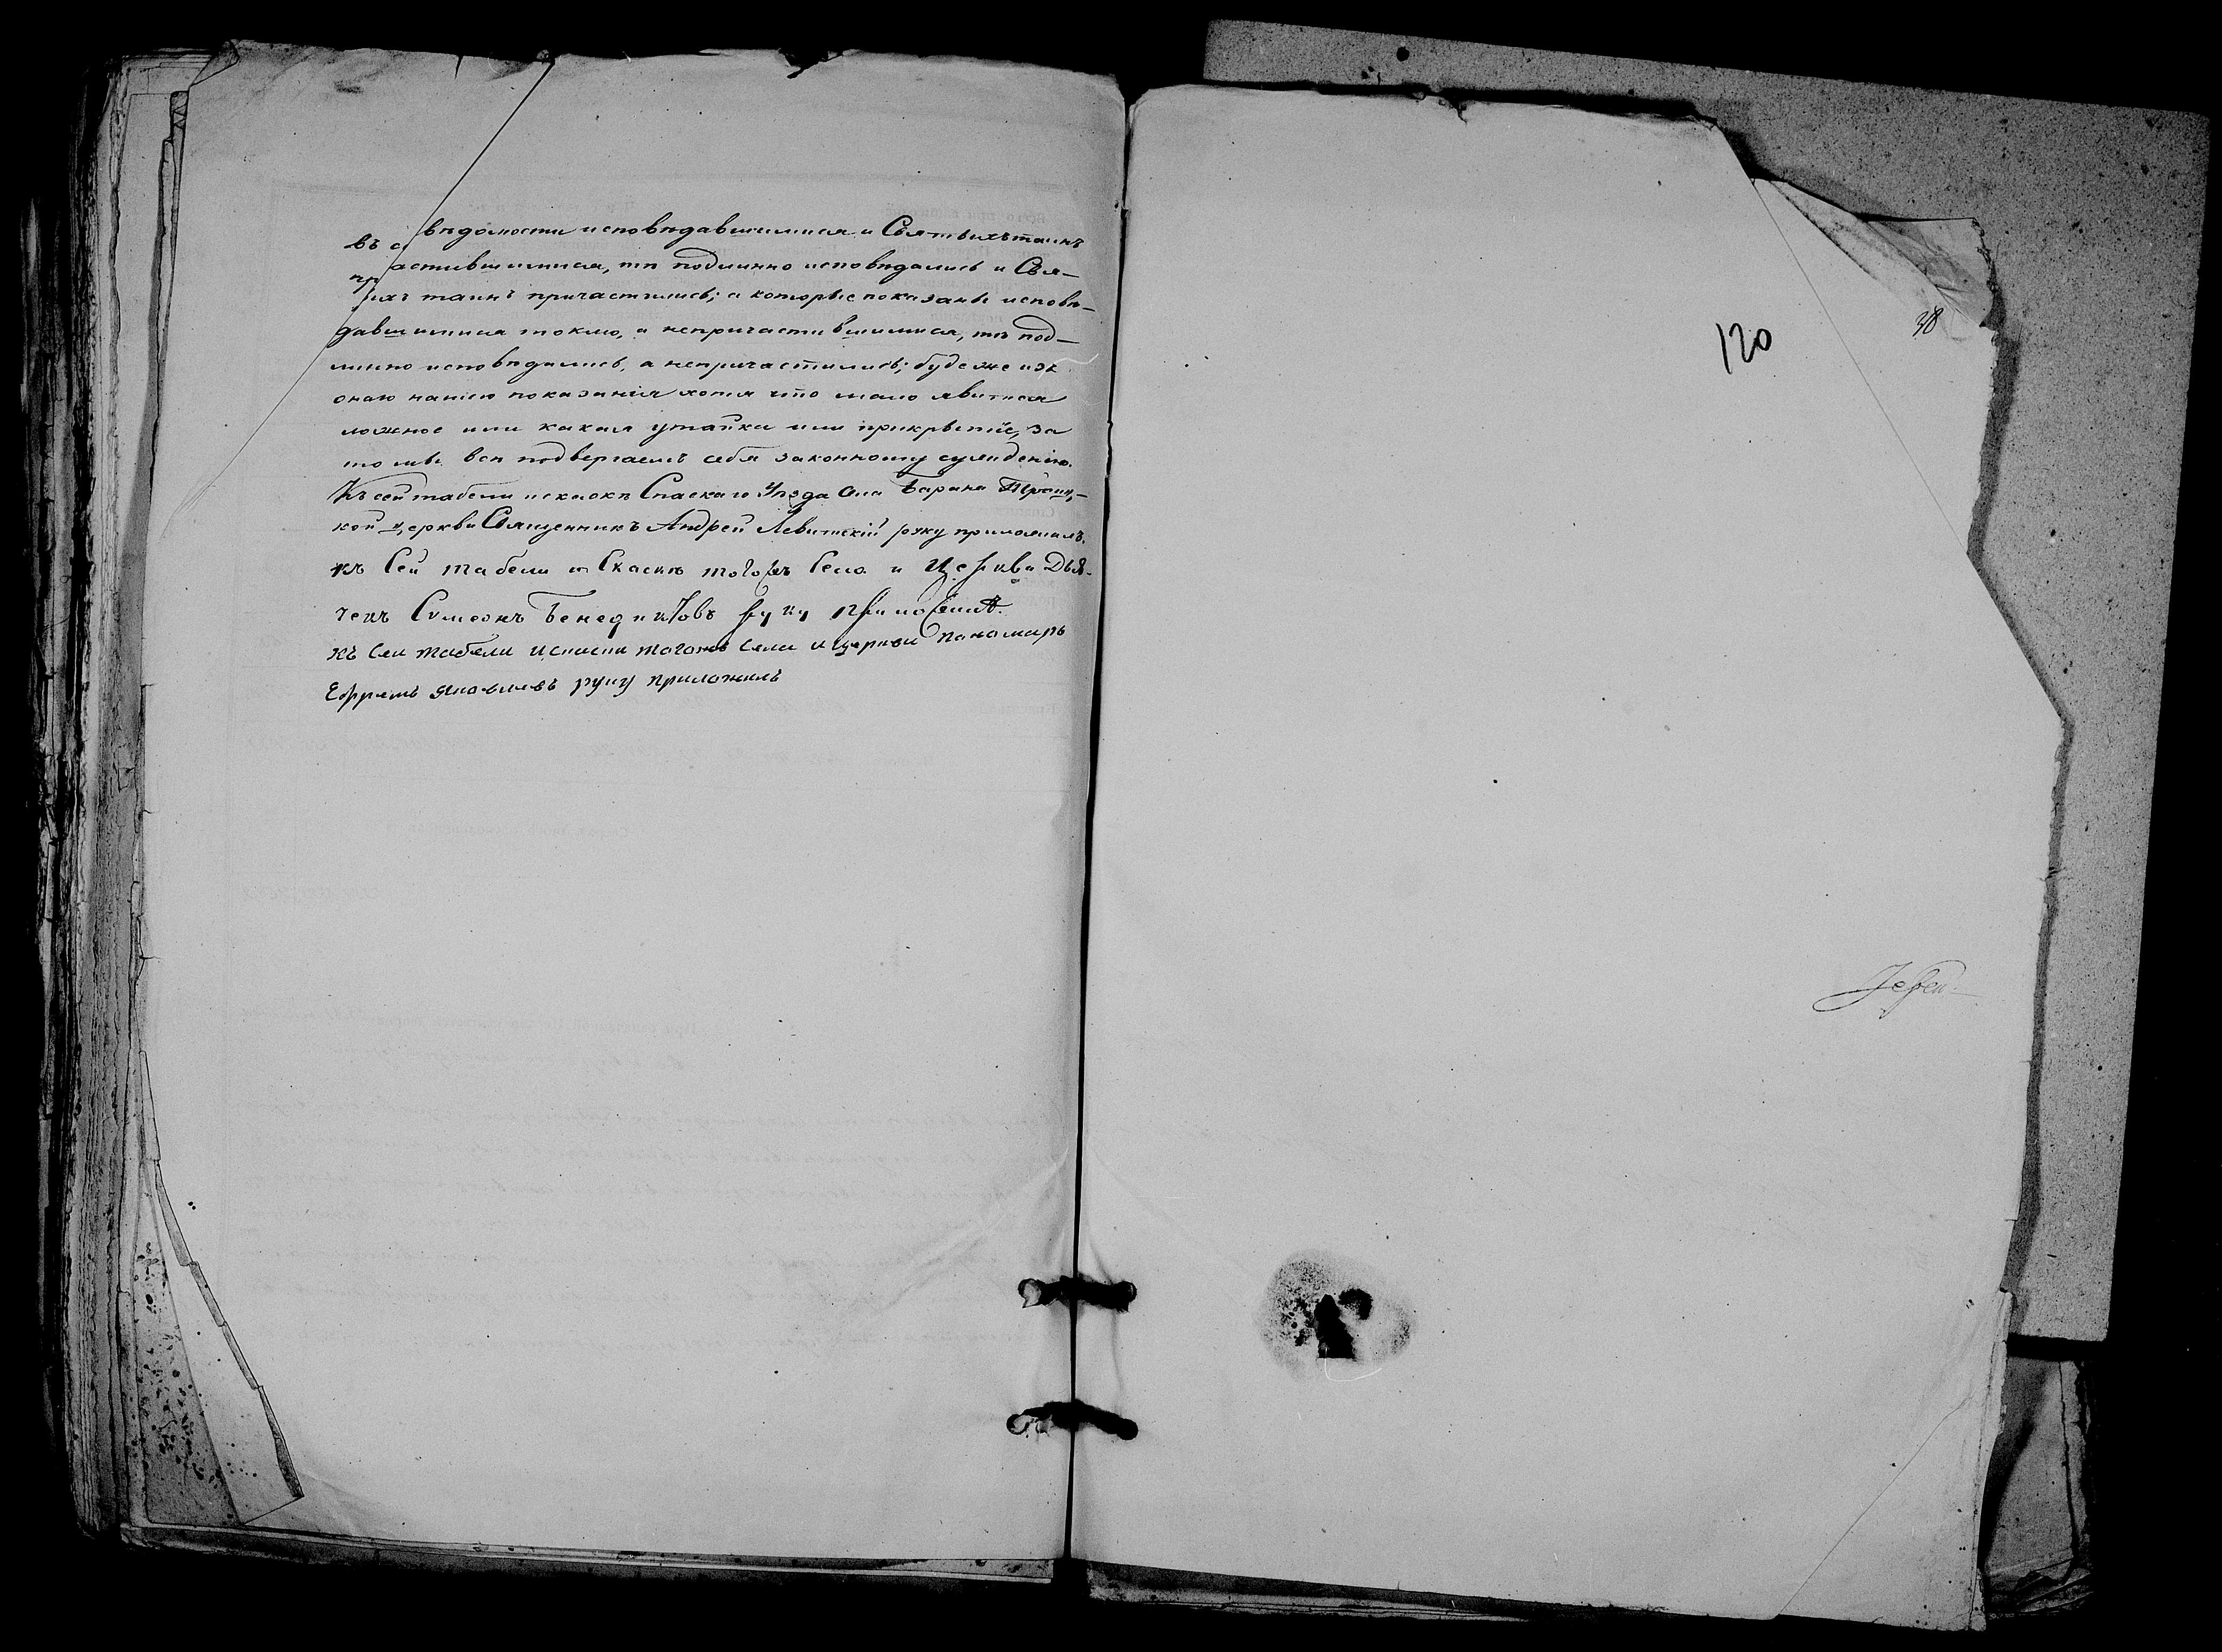 въ с вѣдомости исповѣдавшимися и Святыхъ таинъ
пр астившимися, тѣ подлинно исповѣдались и Свя-
ихъ таинъ причастились; а которые показаны исповѣ-
давшимися токмо, а непричастившимися, тѣ под-
линно исповѣдались, а непричастились; буде же изъ
онаго нашего показанія хотя что мало явится
ложное или какая утайка или прикрытіе, за
то мы всѣ подвергаемъ себя законному сужденію.
Къ сей табели и скаскѣ Спаскаго Уѣзда Села Барана Троиц-
кой церкви Священникъ Андрей Левитскій руку приложилъ.
къ Сей табели и Скаскѣ тогожъ Села и Церкви Дья-
чекъ Симеонъ Бенедиктовъ руку приложилъ.
къ Сеи табели и скаски тогожъ села и церкви понамарь
Ефремъ Яковлевъ руку приложилъ
120
38